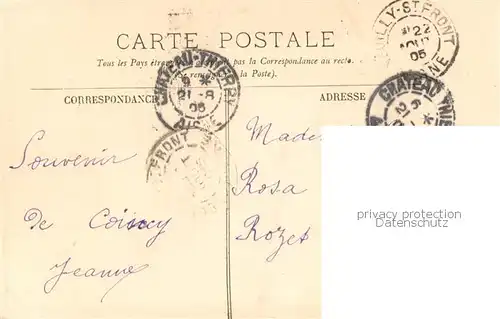 CARTE POSTALE
Tous les Pays étrangers pas la Correspondance au recto.
à la Poste).
CORRESPONDANCE
ADRESSE
CHATEAU-THIERRY
9
21 -8
05
AISNE
22
AOUT
05
CHATEAU THIE
FRONT
Souvenir
de Coincy
Jeanne
Rosa
Rozet
privacy protection
Datenschutz